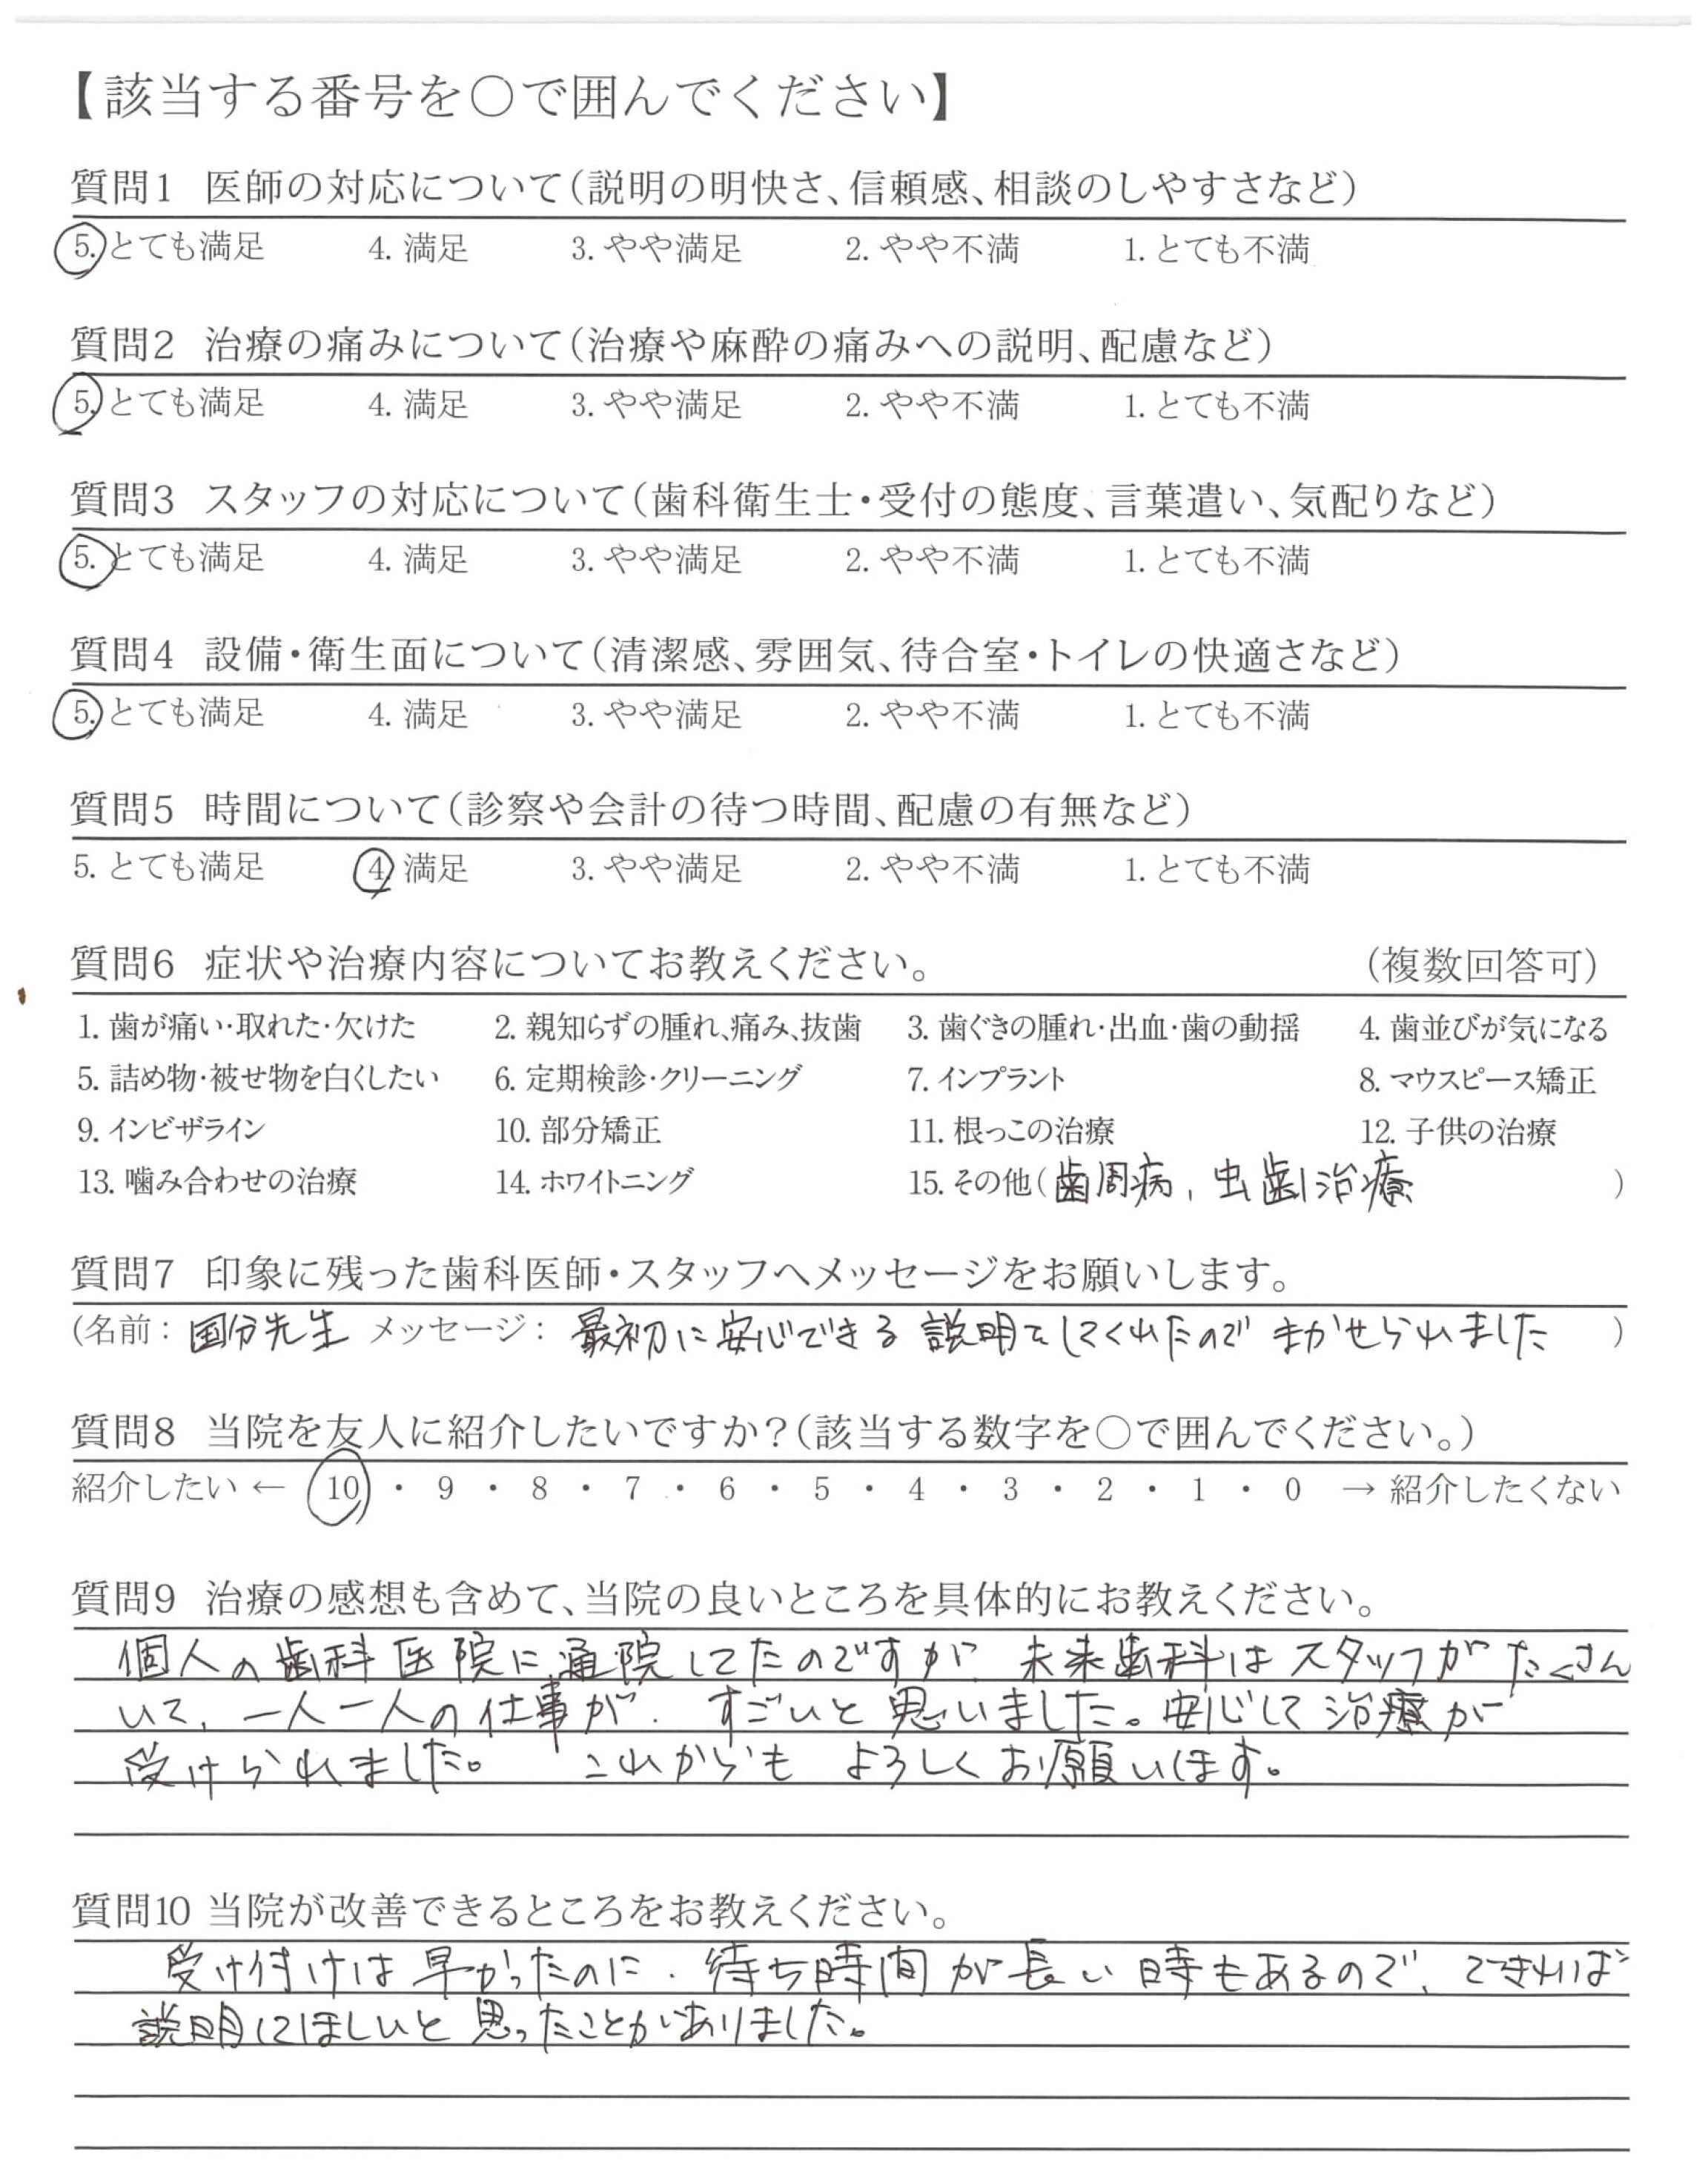 【該当する番号を〇で囲んでください】
質問1 医師の対応について(説明の明快さ、信頼感、相談のしやすさなど)
5. とても満足 4. 満足 3. やや満足 2. やや不満 1. とても不満
質問2 治療の痛みについて(治療や麻酔の痛みへの説明、配慮など)
5. とても満足 4. 満足 3. やや満足 2. やや不満 1. とても不満
質問3 スタッフの対応について(歯科衛生士・受付の態度、言葉遣い、気配りなど)
5. とても満足 4. 満足 3. やや満足 2. やや不満 1. とても不満
質問4 設備・衛生面について(清潔感、雰囲気、待合室・トイレの快適さなど)
5. とても満足 4. 満足 3. やや満足 2. やや不満 1. とても不満
質問5 時間について(診察や会計の待つ時間、配慮の有無など)
5. とても満足 4. 満足 3. やや満足 2. やや不満 1. とても不満
質問6 症状や治療内容についてお教えください。 (複数回答可)
1. 歯が痛い・取れた・欠けた 2. 親知らずの腫れ、痛み、抜歯 3. 歯ぐきの腫れ・出血・歯の動揺 4. 歯並びが気になる
5. 詰め物・被せ物を白くしたい 6. 定期検診・クリーニング 7. インプラント 8. マウスピース矯正
9. インビザライン 10. 部分矯正 11. 根っこの治療 12. 子供の治療
13. 噛み合わせの治療 14. ホワイトニング 15. その他(歯周病、虫歯治療 )
質問7 印象に残った歯科医師・スタッフへメッセージをお願いします。
(名前: 国分先生 メッセージ: 最初に安心できる説明をしてくれたのでまかせられました )
質問8 当院を友人に紹介したいですか?(該当する数字を〇で囲んでください。)
紹介したい ← 10 ・ 9 ・ 8 ・ 7 ・ 6 ・ 5 ・ 4 ・ 3 ・ 2 ・ 1 ・ 0 → 紹介したくない
質問9 治療の感想も含めて、当院の良いところを具体的にお教えください。
個人の歯科医院に通院してたのですが、未来歯科はスタッフがたくさん
いて、一人一人の仕事が、すごいと思いました。安心して治療が
受けられました。 これからも よろしくお願いします。
質問10 当院が改善できるところをお教えください。
受け付けは早かったのに、待ち時間が長い時もあるので、できれば
説明してほしいと思ったことがありました。